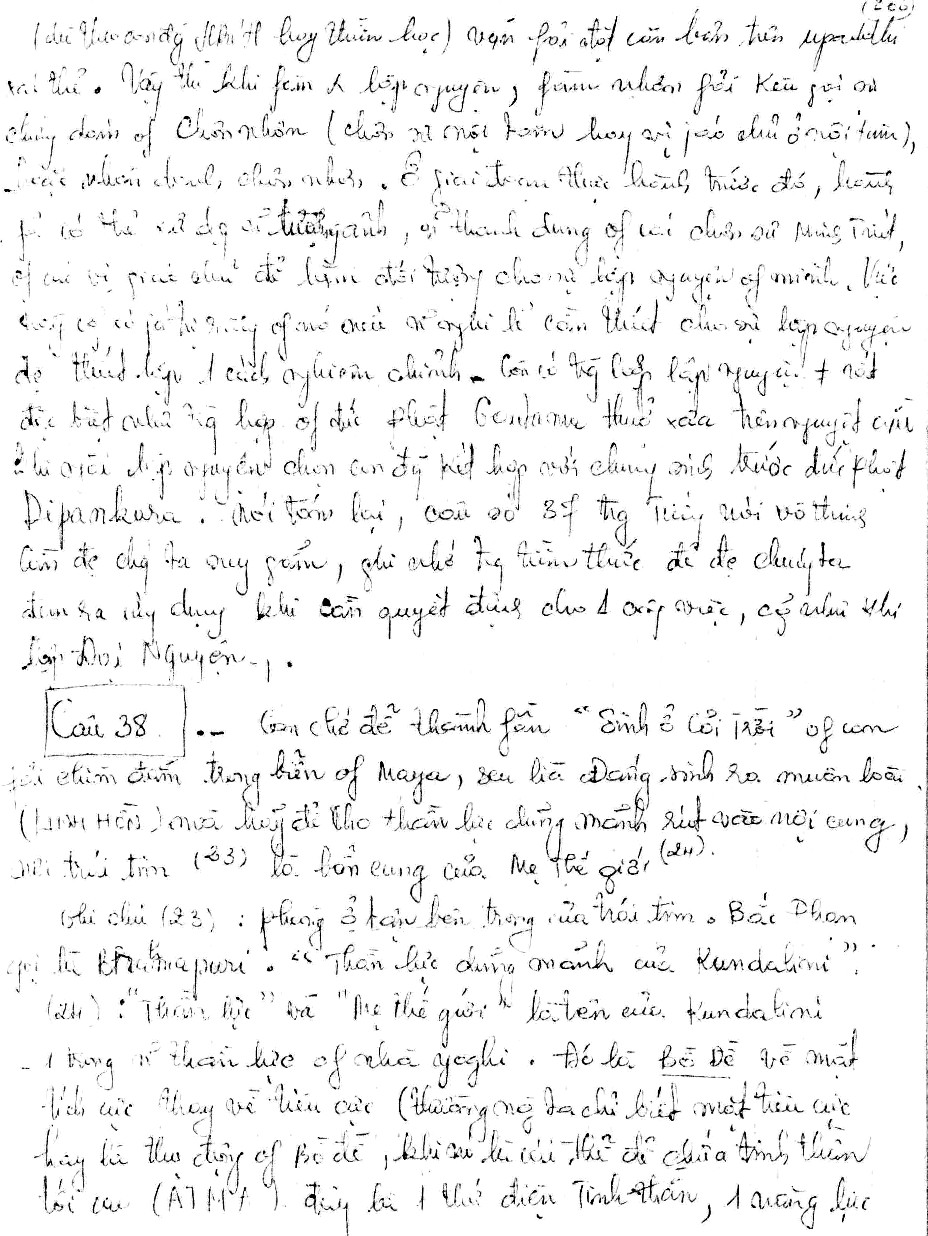 (260)
(dù theo đg MBTH hay thiền học) vẫn fải đặt căn bản trên upadithi
xác thể. Vậy thì khi fám 1 lập nguyện, fàm nhân fải kêu gọi sự
chứng đàm of Chơn nhân (chơn sư nội tâm hay vị jáo chủ ở nội tâm),
hoặc nhân danh chơn nhơn. Ở giai đoạn thực hành trước đó, hành
jả có thể sử dg hình ảnh, thánh dung of các chơn sư Minh Triết,
of các vị giáo chủ để làm đối tượng cho sự lập nguyện of mình. Việc
này cg có já trị riêng of nó nếu nghi lễ cần thiết cho sự lập nguyện
đc thiết lập 1 cách nghiêm chỉnh - Còn có trg hợp lập nguyện rất
đặc biệt như trg hợp of đức Phật Gautama thuở xưa trên nguyệt cầu
khi ngài lập nguyện chọn con đg kết hợp với chúng sinh trước đức Phật
Dipankara. Nói tóm lại, câu số 37 trg Tiếng nói vô thinh
cần đc chg ta suy gẫm, ghi nhớ trg tiềm thức để đc chúng ta
đem ra xây dụng khi cần quyết định cho 1 công việc, cg như khi
lập Đại Nguyện.
Câu 38 .. Con chớ để thành fần "Sinh ở Cõi Trời" of con
fải chìm đắm trong biển of Maya, xa lìa Đấng sinh ra muôn loài
(LINH HỒN) mà hãy để cho thần lực dũng mãnh rút vào nội cung,
nơi trái tim (23) là bổn cung của Mẹ Thế giới (24).
Ghi chú (23) : phòng ở tận bên trong của trái tim. Bắc Phạn
gọi là Brahmapuri. "Thần lực dũng mãnh của Kundalini".
(24) : "Thần lực" và "Mẹ thế giới" là tên của Kundalini
- 1 trong thần lực of nhà yoghi. Đó là Bồ Đề về mặt
tích cực thay về tiêu cực (thường ng ta chỉ biết mặt tiêu cực
hay là thụ động of Bồ đề, khi nó là cái thể để chứa tinh thần
tối cao (ATMA). đây là 1 thứ điện Tinh thần, 1 năng lực